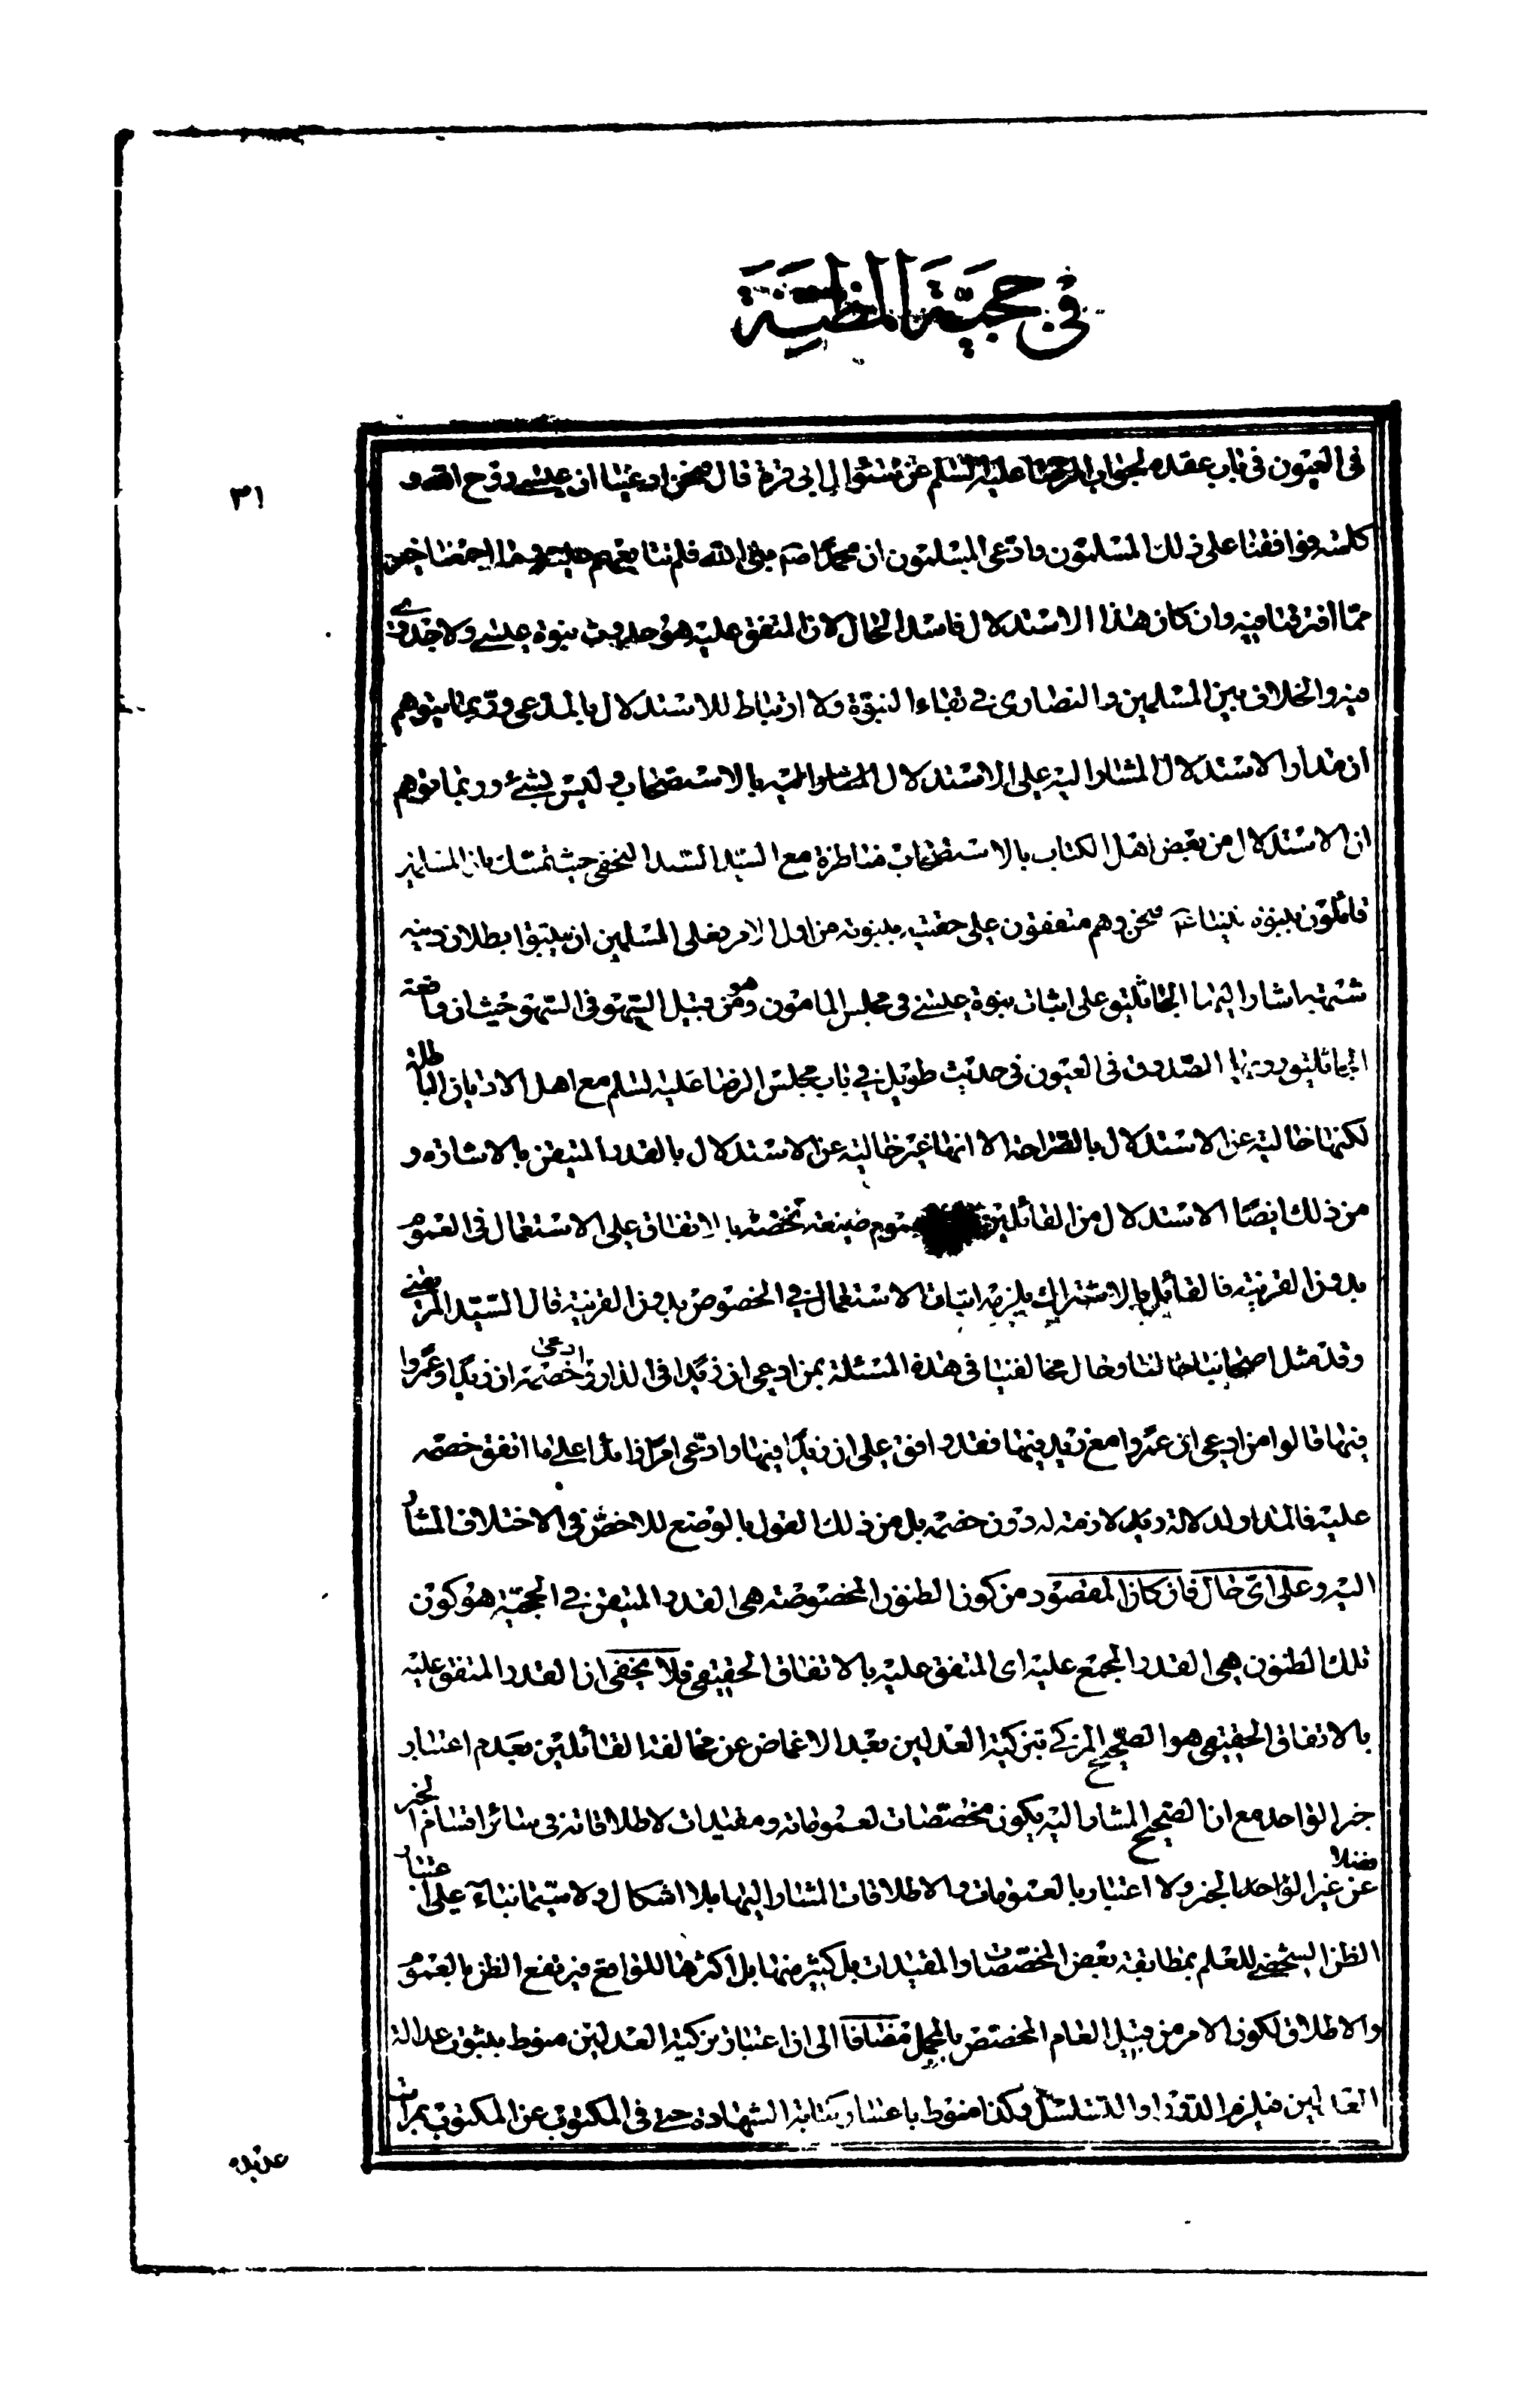 في حجية المظنة
٣١
في العيون في باب عقده لجواب الرضا عليه السلم عن سئوال ابي قرة قال نحن ادعينا ان عيسى روح الله و
كلمته فوافقنا على ذلك المسلمون وادعى المسلمون ان محمدا صم نبي الله فلم نتابعهم عليه وما اجمعنا خير
مما افترقنا فيه وان كان هذا الاستدلال فاسد الحال لان المتفق عليه هو حدوث نبوة عيسى ولا جدوى
فيه والخلاف بين المسلمين والنصارى في بقاء النبوة ولا ارتباط للاستدلال بالمدعى وربما يتوهم
ان مدار الاستدلال المشار اليه على الاستدلال المشار اليه بالاستصحاب وليس بشئ وربما توهم
ان الاستدلال من بعض اهل الكتاب بالاستصحاب مناظرة مع السيد السند النجفي حيث تمسك بان المسلمين
قائلون بنبوة نبينا نحن وهم متفقون على حقيته بنبوته من اول الامر فعلى المسلمين ان يثبتوا بطلان دينه
شبهته اشار اليها الجاثليق على اثبات نبوة عيسى في مجلس المامون وهو من قبيل السهو في السهو حيث ان واقعة
الجاثليق رويها الصدوق في العيون في حديث طويل في باب مجلس الرضا عليه السلم مع اهل الاديان الباطلة
لكنها خالية عن الاستدلال بالصراحة الا انها غير خالية عن الاستدلال بالقدر المتيقن بالاشارة و
من ذلك ايضا الاستدلال من القائلين صيغة تخصه بالاتفاق على الاستعمال في العموم
بدون القرينة فالقائل بالاشتراك يلزمه اثبات الاستعمال في الخصوص بدون القرينة قال السيد المرتضى
وقد مثل اصحابنا حالنا وحال مخالفينا في هذه المسئلة بمن ادعى ان زيدا في الدار وادعى خصمه ان زيدا وعمروا
فيها قالوا من ادعى ان عمروا مع زيد فيها فقد وافق على ان زيدا فيها وادعى امرا زائدا على ما اتفق خصمه
عليه فالمدار لدلالة ويد لازمة له دون خصمه بل من ذلك القول بالوضع للاخص في الاختلاف المشار
اليه وعلى اي حال فان كان المقصود من كون الظنون المخصوصة هي القدر المتيقن في الحجية هو كون
تلك الظنون هي القدر المجمع عليه اي المتفق عليه بالاتفاق الحقيقي فلا يخفى ان القدر المتفق عليه
بالاتفاق الحقيقي هو الصحيح المزكى بتزكية العدلين بعد الاغماض عن مخالفة القائلين بعدم اعتبار
خبر الواحد مع ان الصحيح المشار اليه يكون مخصصات لعموماته ومقيدات لاطلاقاته في سائر اقسام الخبر
فضلا عن غير الواحد الخبر ولا اعتبار بالعمومات والاطلاقات المشار اليها بلا اشكال ولا سيما بناء على اعتبار
الظن الشخصي للعلم بمطابقة بعض المخصصات والمقيدات بل كثير منها بل اكثرها للواقع فيرتفع الظن بالعموم
والاطلاق لكون الامر من قبيل العام المخصص بالمجمل مضافا الى ان اعتبار تزكية العدلين منوط بثبوت عدالة
العدلين فيلزم الدور او التسلسل وكذا منوط باعتبار كتابة الشهادة حتى في المكتوب عن المكتوب بمراتب
عديدة